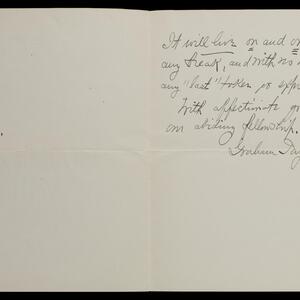 It will live on and on
any break, and with no
any "last" token or
With affectionate
our abiding fellowship.
Graham